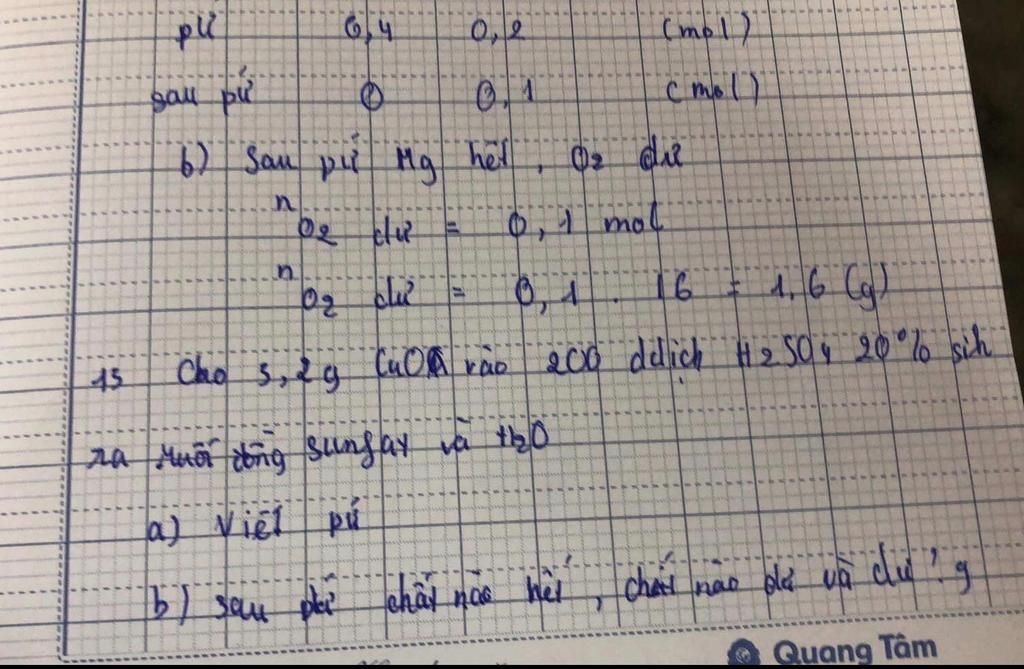 pứ 0,4 0,2 (mol)
sau pứ 0 0,1 (mol)
b) Sau pứ Mg hết, O2 dư
n O2 dư = 0,1 mol
n O2 dư = 0,1 . 16 = 1,6 (g)
15 Cho 3,2g CuO vào 200 ddịch H2SO4 20% sih
ra muối đồng sunfat và H2O
a) Viết pứ
b) sau pứ chất nào hết, chất nào dư và dư ? g
Quang Tâm